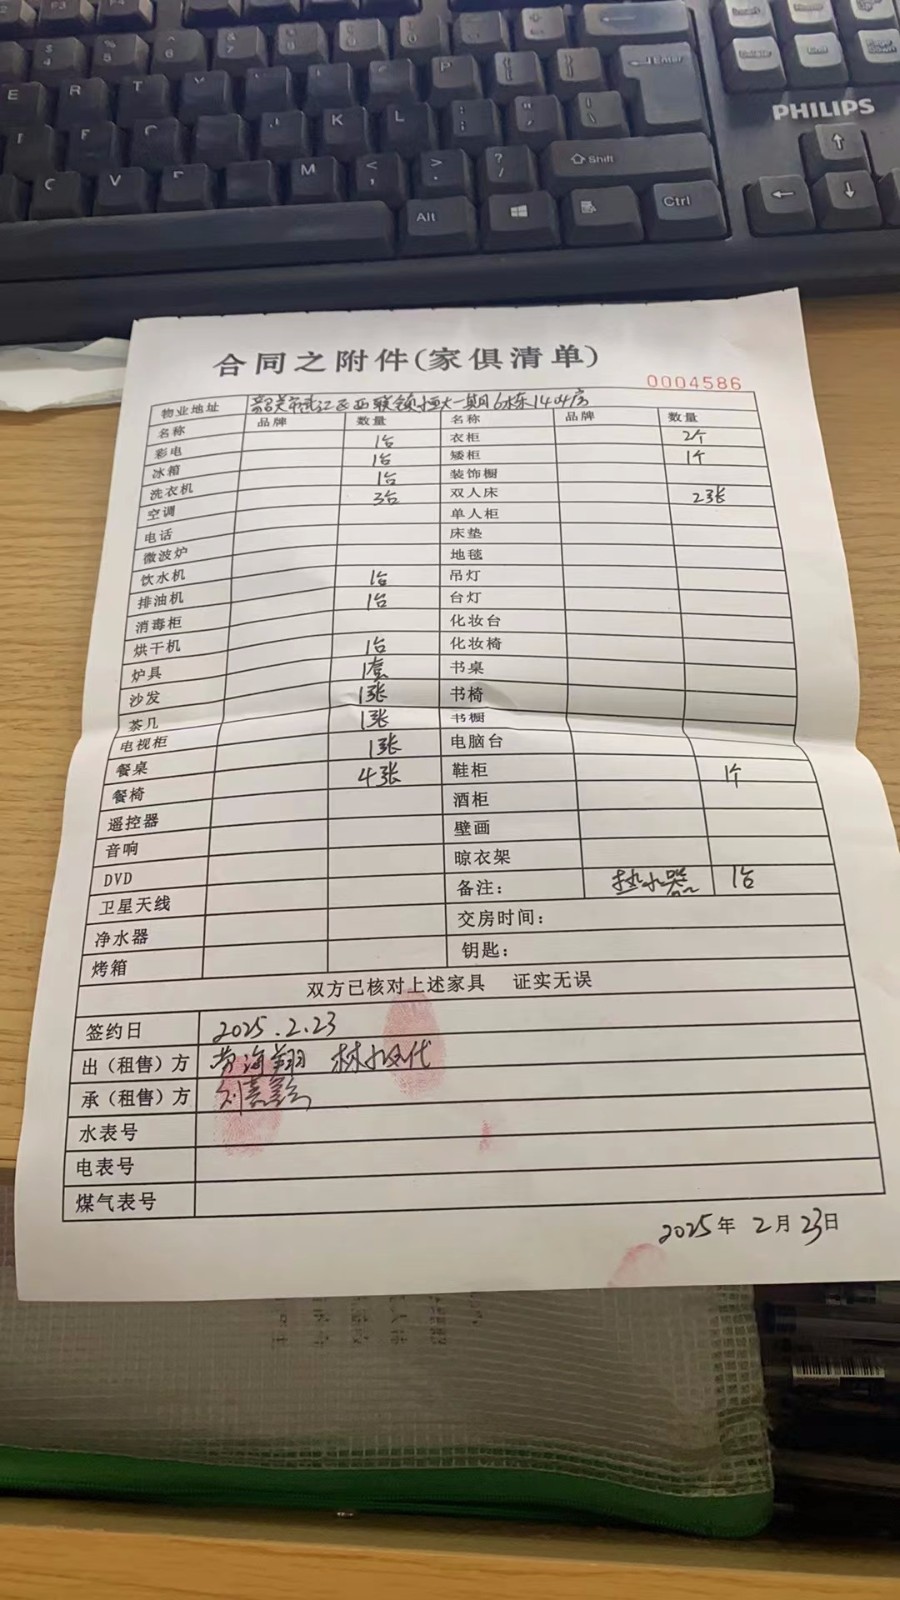 PHILIPS
Enter
Shift
Alt
Ctrl
E R T K L P
C V M
合同之附件(家俱清单)
0004586
物业地址 韶关市武江区西联镇恒大一期6栋1404房
名称 品牌 数量 名称 品牌 数量
彩电 1台 衣柜 2个
冰箱 1台 矮柜 1个
洗衣机 1台 装饰橱
空调 3台 双人床 2张
电话 单人柜
微波炉 床垫
饮水机 地毯
排油机 1台 吊灯
消毒柜 1台 台灯
烘干机 化妆台
炉具 1台 化妆椅
沙发 1套 书桌
茶几 1张 书椅
电视柜 1张 书橱
餐桌 1张 电脑台
餐椅 4张 鞋柜 1个
遥控器 酒柜
音响 壁画
DVD 晾衣架
卫星天线 备注： 热水器 1台
净水器 交房时间：
烤箱 钥匙：
双方已核对上述家具 证实无误
签约日 2025.2.23
出（租售）方 黄海翔
承（租售）方
水表号
电表号
煤气表号
2025年 2月23日